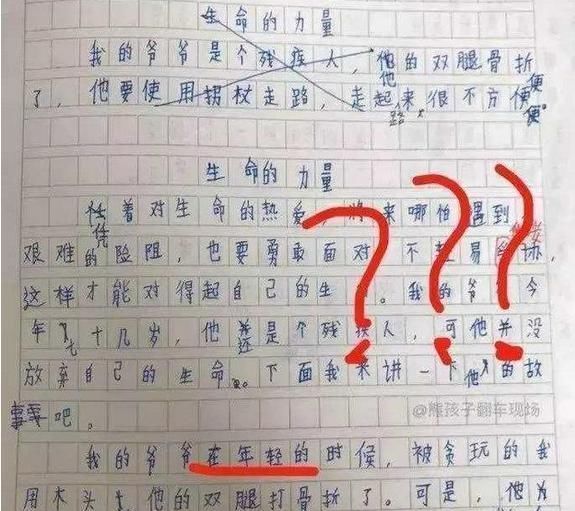 生命的力量
我的爷爷是个残疾人，他的双腿骨折
了，他要使用拐杖走路，走起路来很不方便。
生命的力量
凭着对生命的热爱，将来哪怕遇到
艰难的险阻，也要勇敢面对，不轻易妥协，
这样才能对得起自己的生。我的爷今
年七十几岁，他还是个残疾人，可他并没
放弃自己的生命。下面我来讲一下他的故
事吧。
@熊孩子翻车现场
我的爷爷在年轻的时候，被贪玩的我
用木头把他的双腿打骨折了。可是，他为